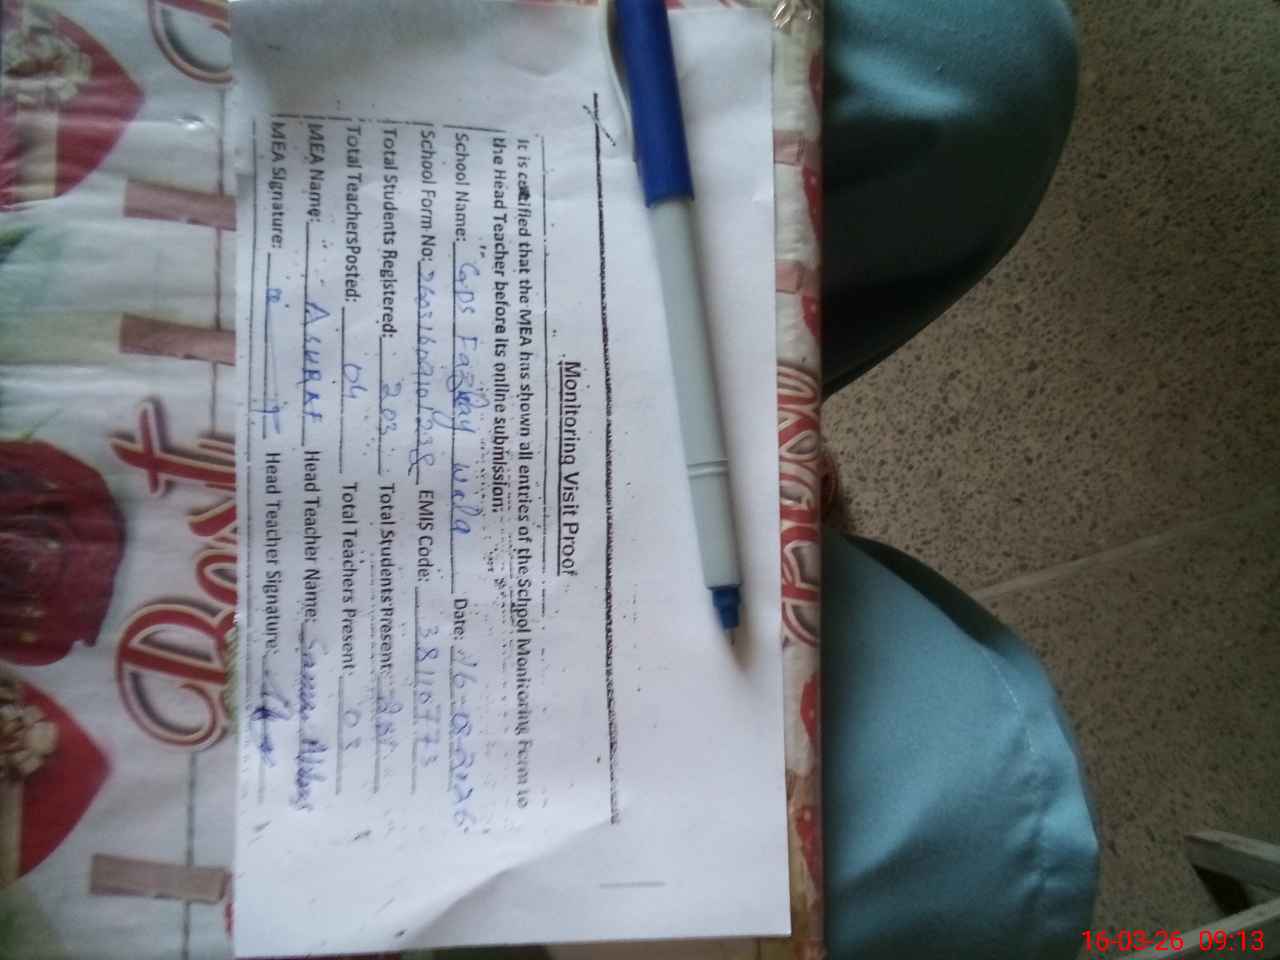 Monitoring Visit Proof
It is certified that the MEA has shown all entries of the School Monitoring Form to
the Head Teacher before its online submission.
School Name: GPS Fazilay Wala Date: 16-03-2026
School Form No: EMIS Code: 38110773
Total Students Registered: 203 Total Students Present:
Total Teachers Posted: 04 Total Teachers Present: 03
MEA Name: ASHRAF Head Teacher Name:
MEA Signature: Head Teacher Signature:
Best
16-03-26 09:13